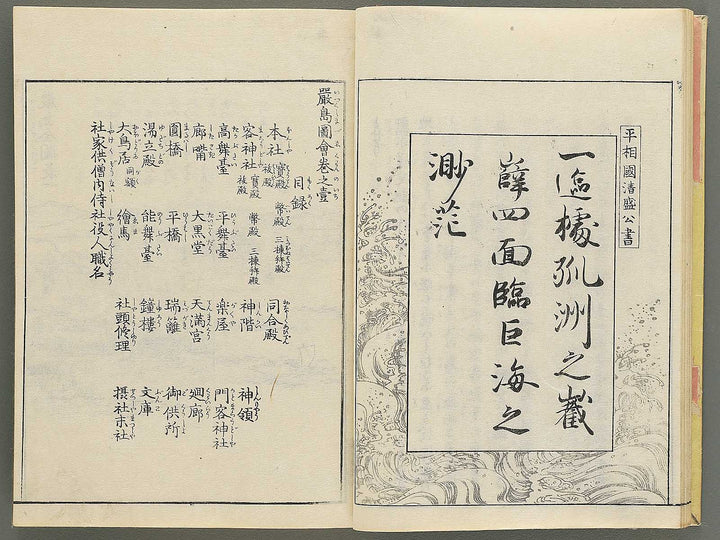 平相國清盛公書
一區據孤洲之巀
嶭四面臨巨海之
渺茫
嚴島圖會卷之壹
目録
本社 寶殿 祓殿 幣殿 三棟拜殿 同合殿
客神社 寶殿 祓殿 幣殿 三棟拜殿 神階 神領
高舞臺 平舞臺 楽屋 門客神社
廊觜 大黒堂 天満宮 廻廊
圓橋 平橋 瑞籬 御供所
湯立殿 能舞臺 鐘樓 文庫
大鳥居 同額 繪馬 社頭修理 摂社末社
社家供僧内侍社役人職名